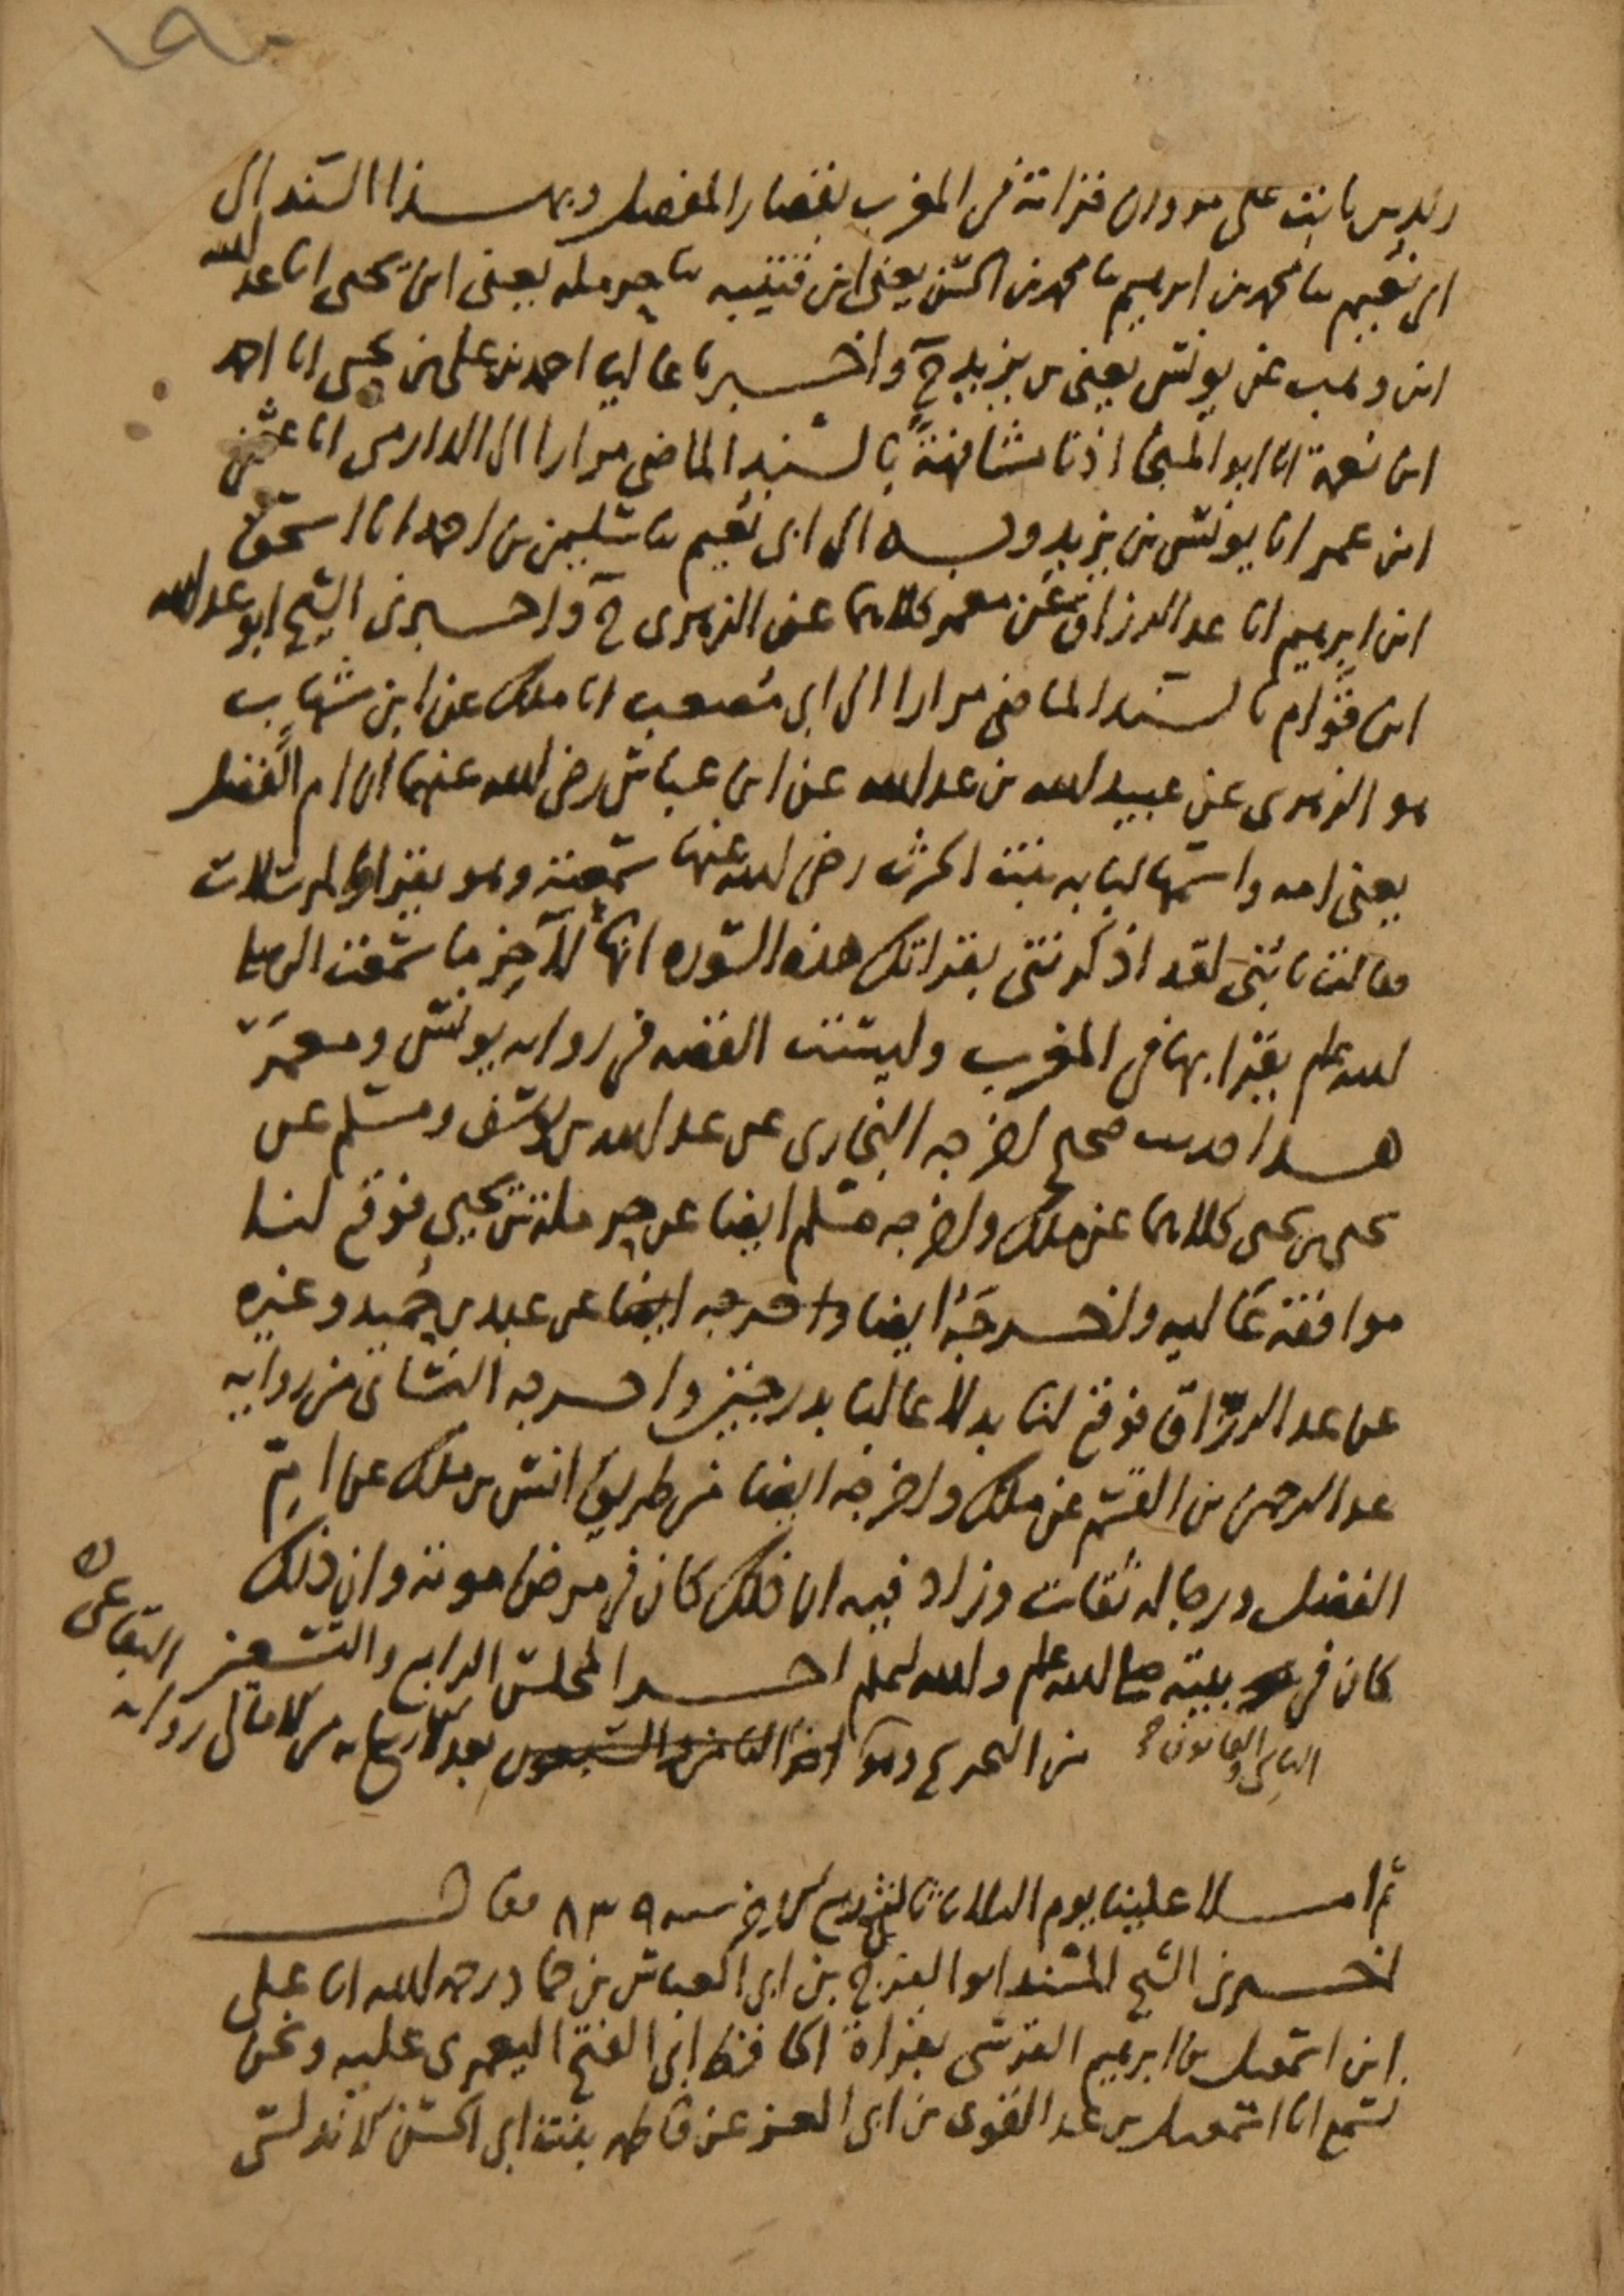 ١٩٠
زيد بن ثابت على مروان قراته في المغرب بقصار المفصل وبهذا السند الى
ابي نعيم ثنا محمد بن ابرهيم ثنا محمد بن الحسن يعني ابن قتيبه ثنا حرمله يعني ابن يحيى انا عبد الله
ابن وهب عن يونس يعني بن يزيد ح واخبرنا عاليا احمد بن علي بن يحيى انا احمد
ابن نعمة انا ابو المنجا اذنا مشافهة بالسند الماضي مرارا الى الدارمي انا عثمن
ابن عمر انا يونس بن يزيد وبه الى ابي نعيم ثنا سليمن بن احمد انا اسحق
ابن ابرهيم انا عبد الرزاق عن معمر كلاهما عن الزهري ح واخبرني الشيخ ابو عبد الله
ابن قوام بالسند الماضي مرارا الى ابي مصعب انا ملك عن ابن شهاب
هو الزهري عن عبيد الله بن عبد الله عن ابن عباس رضي الله عنهما ان ام الفضل
يعني امه واسمها لبابه بنت الحرث رضي الله عنها سمعته وهو يقرا والمرسلات
فقالت يا بني لقد اذكرتني بقراتك هذه السوره انها لآخر ما سمعت النبي صلى
الله علم يقرا بها في المغرب وليست القصه في روايه يونس ومعمر
هذا حديث صحيح اخرجه البخاري عن عبد الله بن يوسف ومسلم عن
يحيى بن يحيى كلاهما عن ملك واخرجه مسلم ايضا عن حرملة بن يحيى فوقع لنا
موافقة عاليه واخرجه ايضا واخرجه ايضا عن عبد بن حميد وغيره
عن عبد الرزاق فوقع لنا بدلا عاليا بدرجتين واخرجه النسائي من روايه
عبد الرحمن بن القسم عن ملك واخرجه ايضا من طريق انس بن ملك عن ام
الفضل ورجاله ثقات وزاد فيه ان ذلك كان في مرض موته وان ذلك
كان في بيته صلى الله علم والله اعلم اخر المجلس الرابع والتسعين
من التخريج وهو الثامن والسبعون بعد الاربعمايه من الامالي روايه البقاعي
الثاني والثمانون
ثم املا علينا يوم الثلاثا ثالث ربيع الاخر سنه ٨٣٩ فقال
اخبرني الشيخ المسند ابو الفرج بن ابي العباس بن حماد رحمه الله انا علي
ابن اسمعيل بن ابرهيم القرشي بقراة الحافظ ابي الفتح اليعمري عليه ونحن
نسمع انا اسمعيل بن عبد القوي بن ابي العز عن فاطمه بنت ابي الحسن الاندلسي